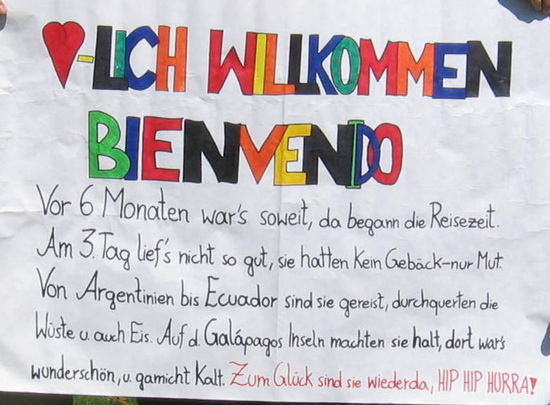 ♥-LICH WILLKOMMEN
BIENVENIDO
Vor 6 Monaten war's soweit, da begann die Reisezeit.
Am 3. Tag lief's nicht so gut, sie hatten Kein Gebäck-nur Mut.
Von Argentinien bis Ecuador sind sie gereist, durchquerten die
Wüste u. auch Eis. Auf d. Galápagos Inseln machten sie halt, dort war's
wunderschön, u. garnicht Kalt. Zum Glück sind sie wiederda, HIP HIP HURRA!